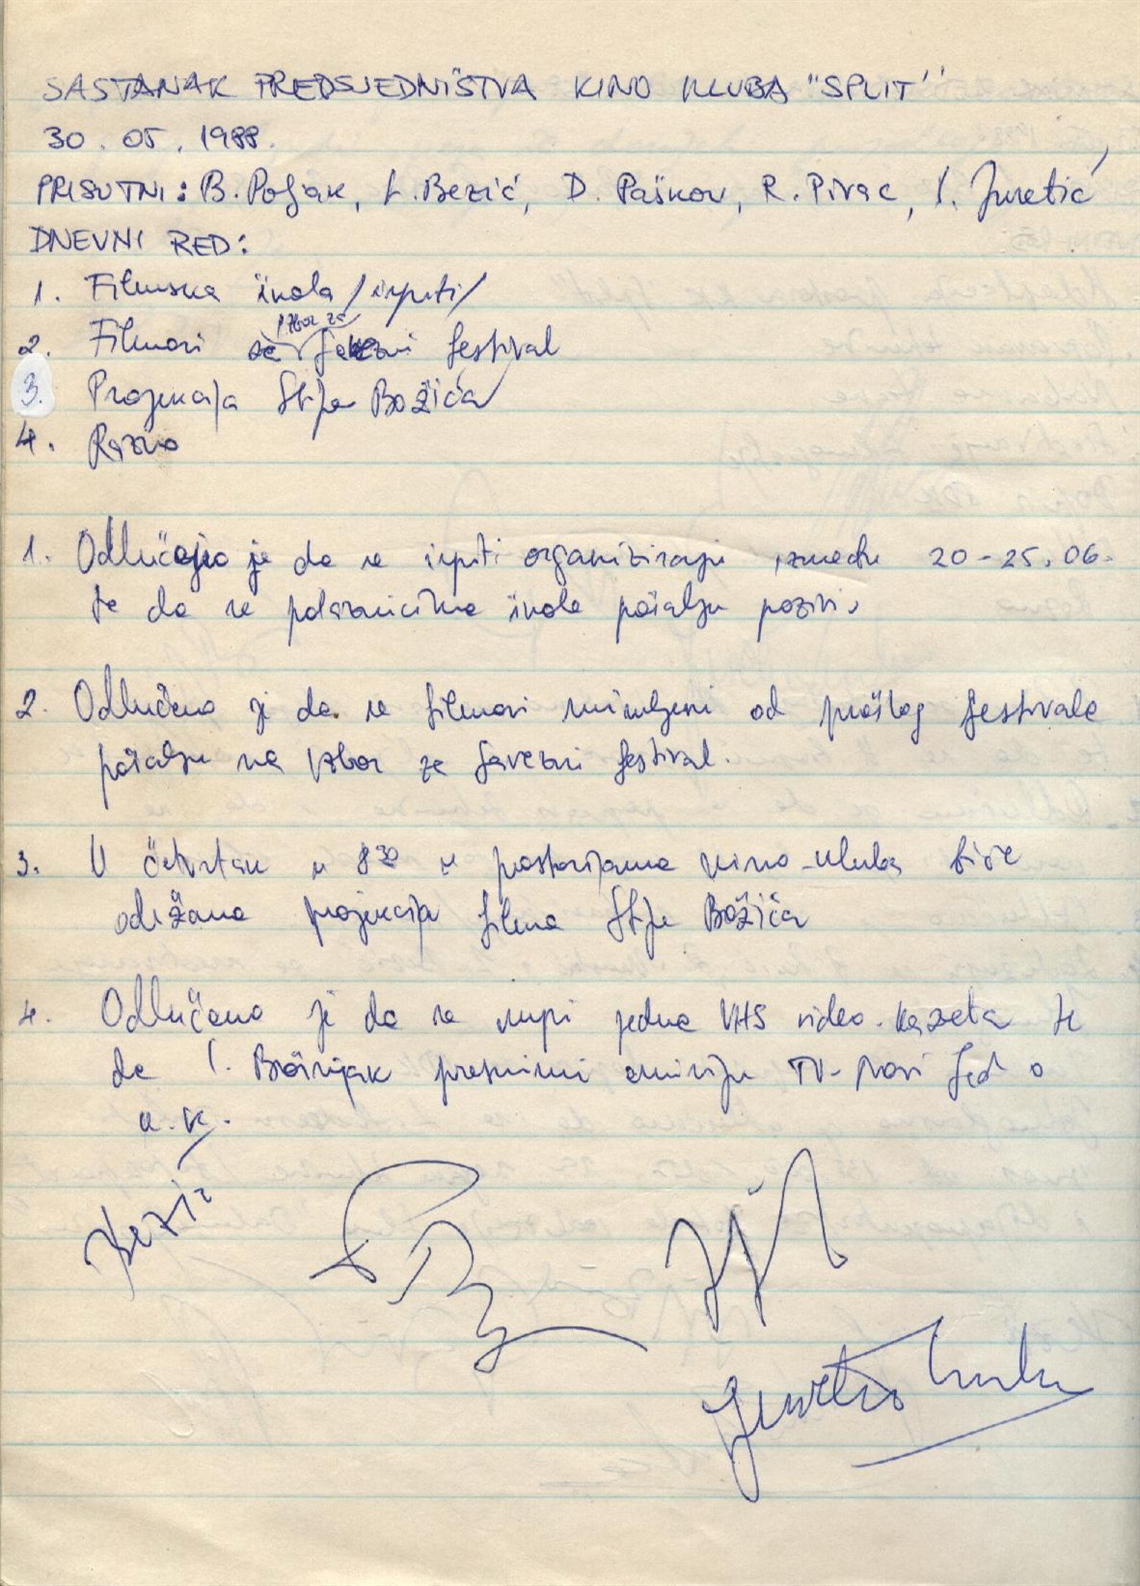 SASTANAK PREDSJEDNIŠTVA KINO KLUBA "SPLIT"
30. 05. 1988.
PRISUTNI: B. Poljak, L. Bezić, D. Paškov, R. Pivac, I. Juretić
DNEVNI RED:
1. Filmska škola /ispiti/
2. Filmovi izbor za savezni festival
3. Projekcija Stipe Božića
4. Razno
1. Odlučeno je da se ispiti organiziraju između 20-25.06.
te da se polaznicima škole pošalju pozivi
2. Odlučeno je da se filmovi snimljeni od prošlog festivala
pošalju na izbor za savezni festival.
3. U četvrtak u 8 30 u prostorijama kino-kluba biće
održana projekcija filma Stipe Božića
4. Odlučeno je da se kupi jedna VHS video-kazeta te
da I. Brošnjak presnimi emisiju TV-Novi Sad o
k.k.
Bezić